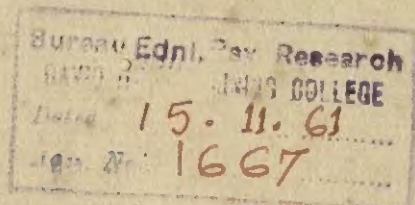 Bureau Ednl. Psy. Research
COLLEGE
Dated 15. 11. 61
1667